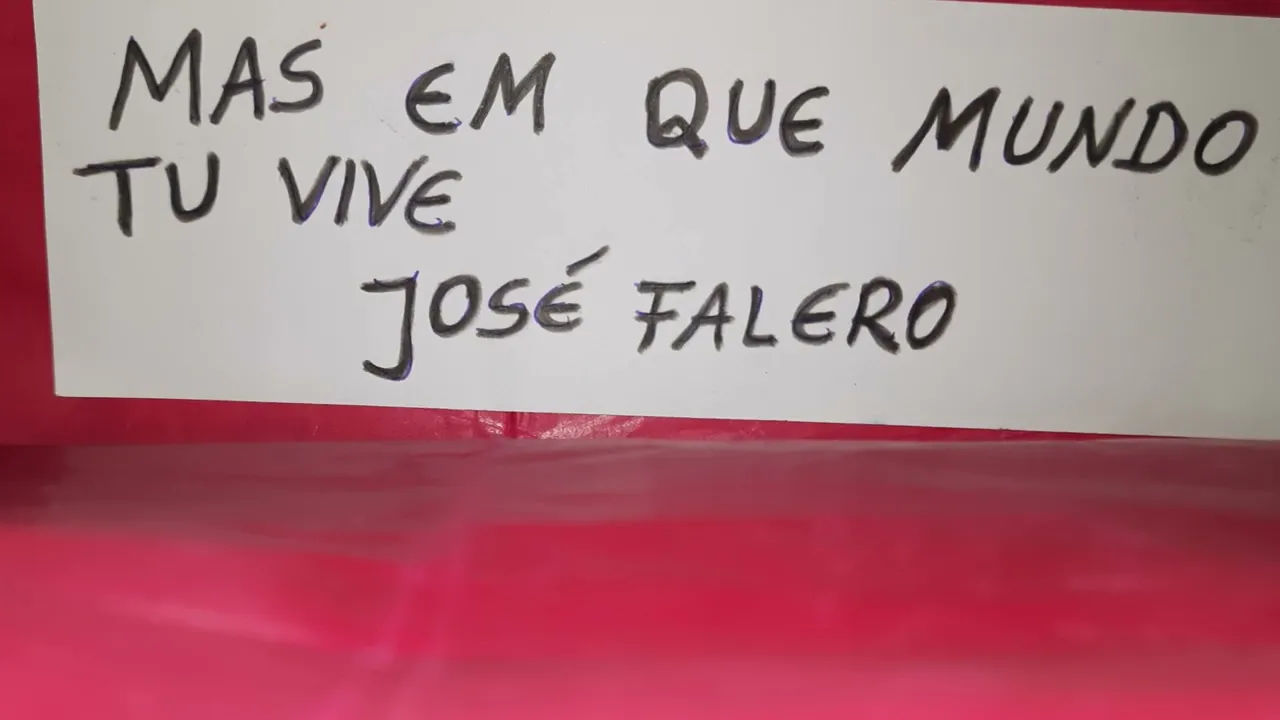 MAS EM QUE MUNDO
TU VIVE
JOSÉ FALERO